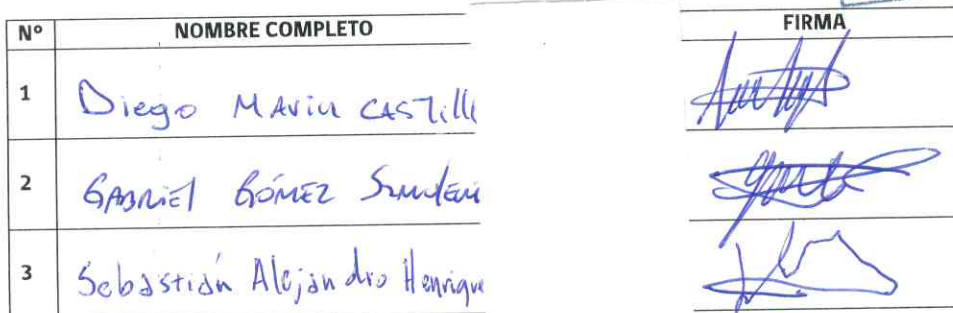 Nº NOMBRE COMPLETO FIRMA
1 Diego MAVIN CASTilll
2 GABRIEL GÓMEZ
3 Sebastián Alejandro Henrique